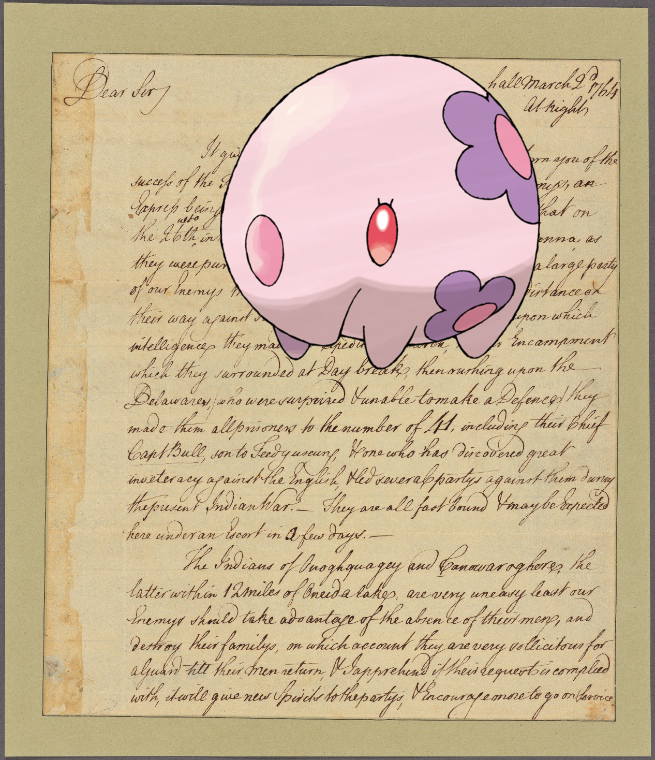 Dear Sir
hall March 2d 1764
At Night
It giv
orn you of the
success of the
mps, an
Express being
that on
the 26th in
onna as
they were pur
a large party
of our Enemys
Distance on
their way against
upon which
intelligence they mad
Encampment
which they surrounded at Day break, then rushing upon the
Delawares, who were surprized & unable to make a Defence, they
made them all prisoners to the number of 41, including their Chief
Capt Bull, son to Teedyuscung & one who has discovered great
inveteracy against the English & led several partys against them during
the present Indian War.— They are all fast bound & may be Expected
here under an Escort in a few days.—
The Indians of Onoghquagey and Canowaroghere, the
latter within 12 miles of Oneida lake, are very uneasy least our
Enemys should take advantage of the absence of their men, and
destroy their familys, on which account they are very sollicitous for
a Guard till their men return, & I apprehend if their request is complied
with, it will give new Spirits to the partys, & Encourage more to go on Service